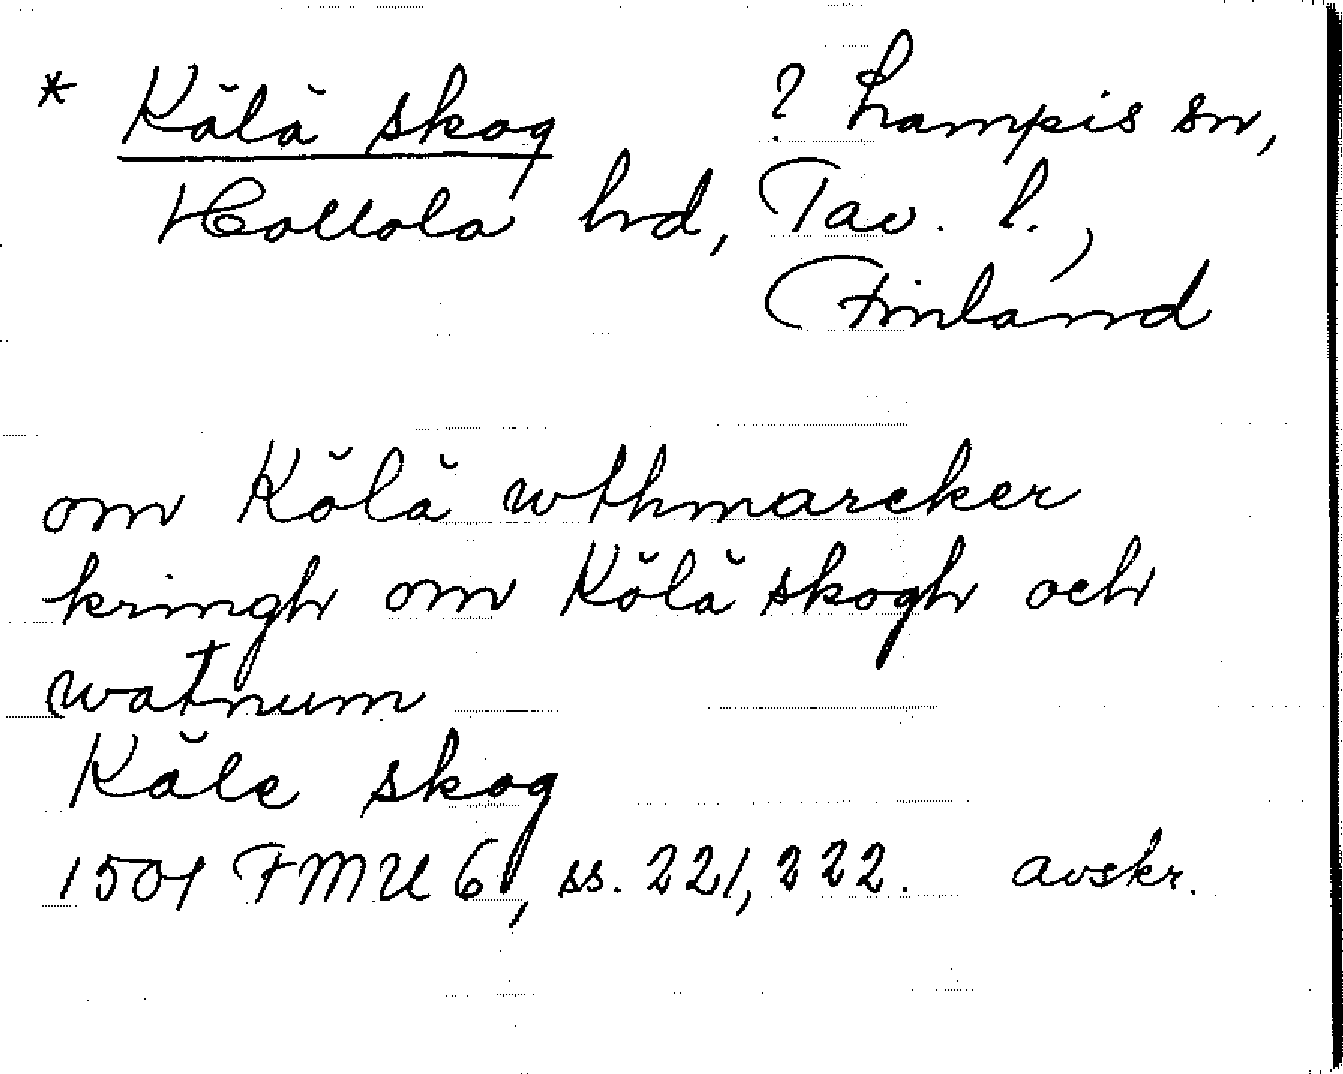 * Kălă skog ? Lampis sn,
Hollola hrd, Tav. l.,
Finland
om Kŏlă wthmarcker
kringh om Kŏlă skogh och
watnum
Kăle skog
1501 FMU 6, ss. 221, 222. avskr.